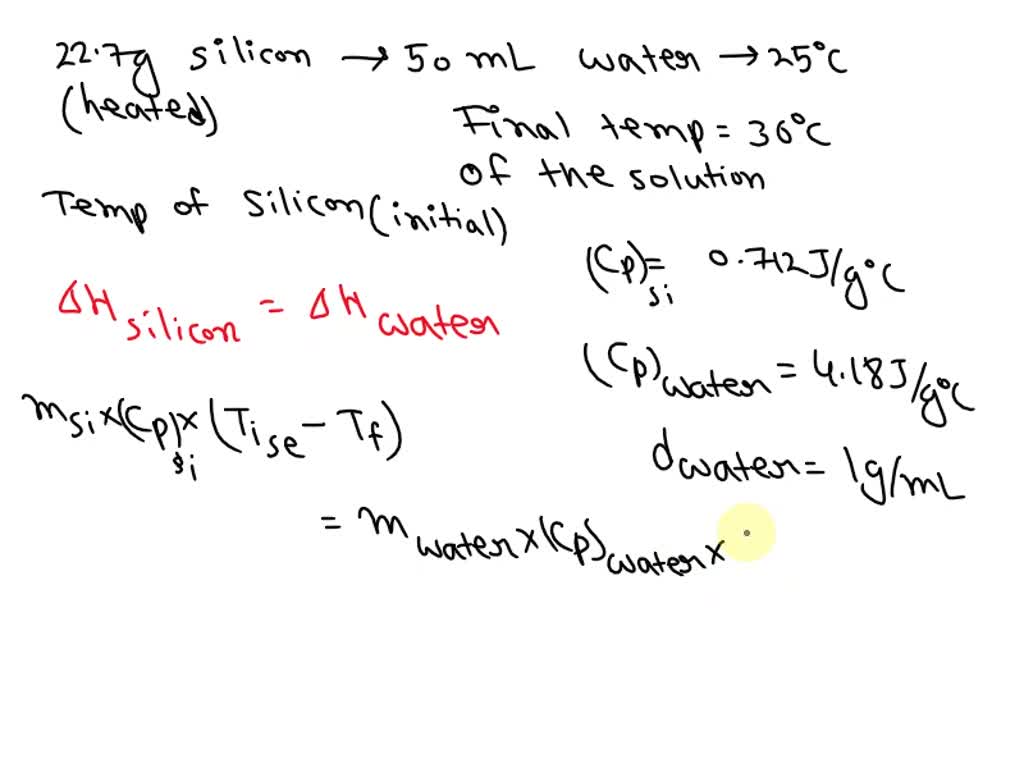 22.7g silicon → 50 mL water → 25°C
(heated)
Final temp = 36°C
of the solution
Temp of silicon (initial)
(Cp)si = 0.712J/g°C
ΔH silicon = ΔH water
(Cp)water = 4.18J/g°C
msi×(Cp)si×(Tise - Tf)
dwater = 1g/mL
= m water×(Cp)water×